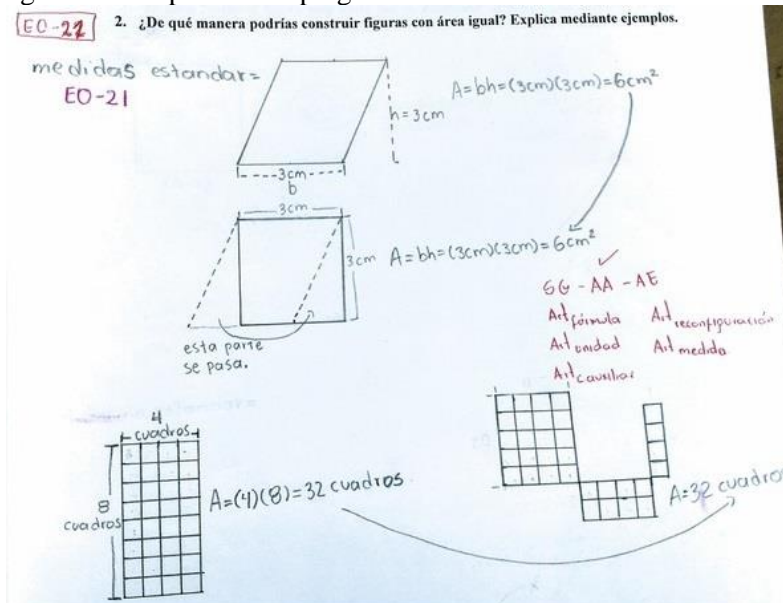 EO-22
2. ¿De qué manera podrías construir figuras con área igual? Explica mediante ejemplos.
medidas estandar=
EO-21
A=bh=(3cm)(3cm)=6cm²
h=3cm
3cm
b
3cm
3cm
A=bh=(3cm)(3cm)=6cm²
esta parte
se pasa.
SG - AA - AE
Art fórmula Art reconfiguración
Art unidad Art medida
4
cuadros
8
cuadros
A=(4)(8)=32 cuadros
A=32 cuadro